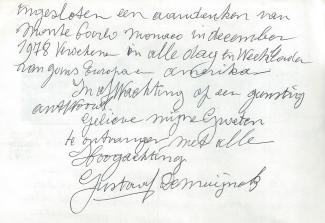 ingesloten een aandenken van
Monte Carlo Monaco in december
1978 Verschenen in alle dag en Weekbladen
van gans Europa en amerika
In afWachting op een gunstig
antWoord.
Gelieve mijne Groeten
te ontvangen met alle
Hoogachting
Gustaaf